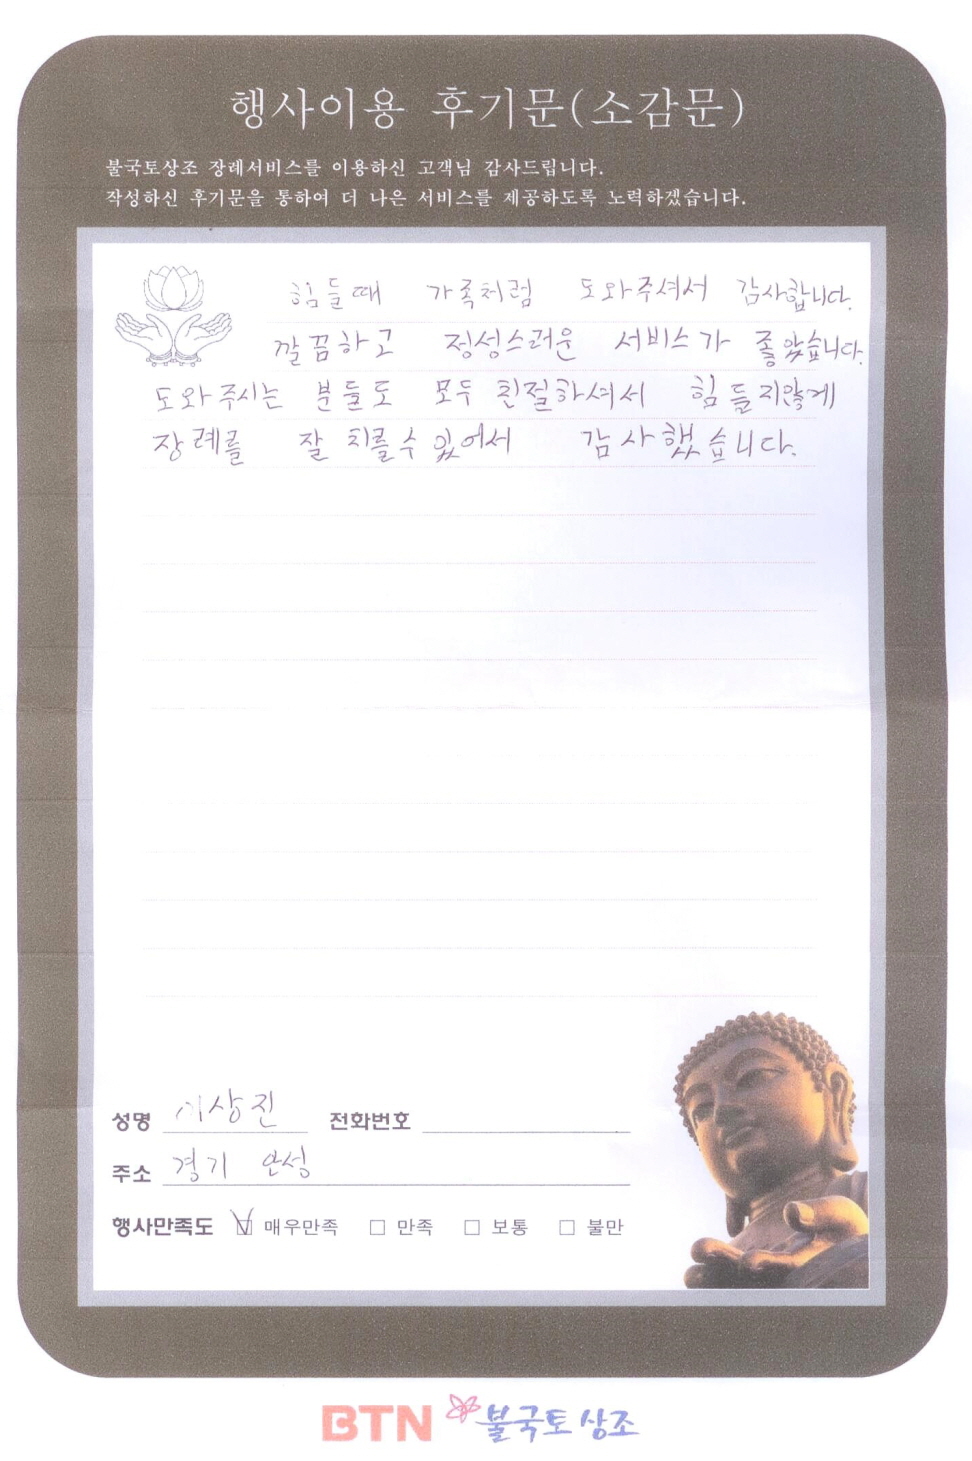 행사이용 후기문(소감문)
불국토상조 장례서비스를 이용하신 고객님 감사드립니다.
작성하신 후기문을 통하여 더 나은 서비스를 제공하도록 노력하겠습니다.
힘들때 가족처럼 도와주셔서 감사합니다.
깔끔하고 정성스러운 서비스가 좋았습니다.
도와주시는 분들도 모두 친절하셔서 힘들지않게
장례를 잘 치를수 있어서 감사했습니다.
성명 이상진 전화번호
주소 경기 안성
행사만족도 ☑ 매우만족 □ 만족 □ 보통 □ 불만
BTN 불국토상조